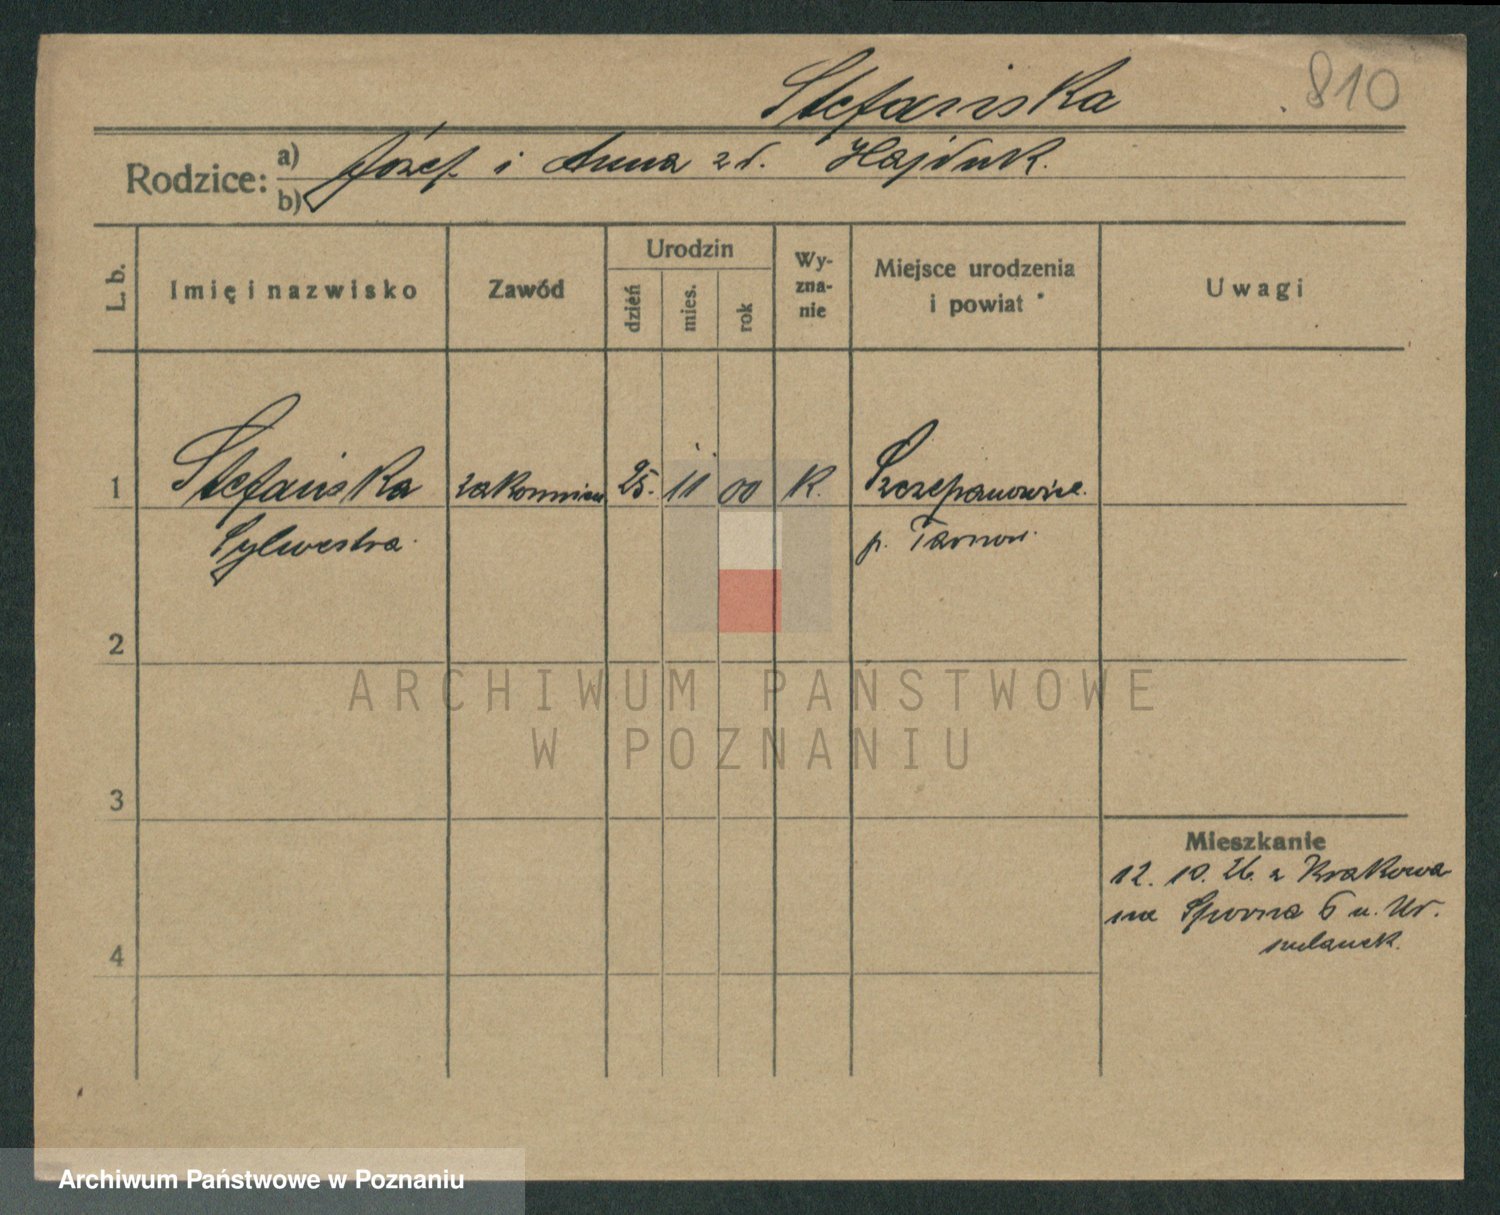 Stefańska
810
Rodzice: a) b) Józef i Anna zd. Hajduk.
L. b.
Imię i nazwisko
Zawód
Urodzin
dzień
mies.
rok
Wy-
zna-
nie
Miejsce urodzenia
i powiat
Uwagi
1
Stefańska zakonnica 25. 11 00 K. Szczepanowice
Sylwestra p. Tarnow.
2
ARCHIWUM PAŃSTWOWE
W POZNANIU
3
Mieszkanie
12. 10. 26. z Krakowa
na Sporna 6 u.
4
Archiwum Państwowe w Poznaniu